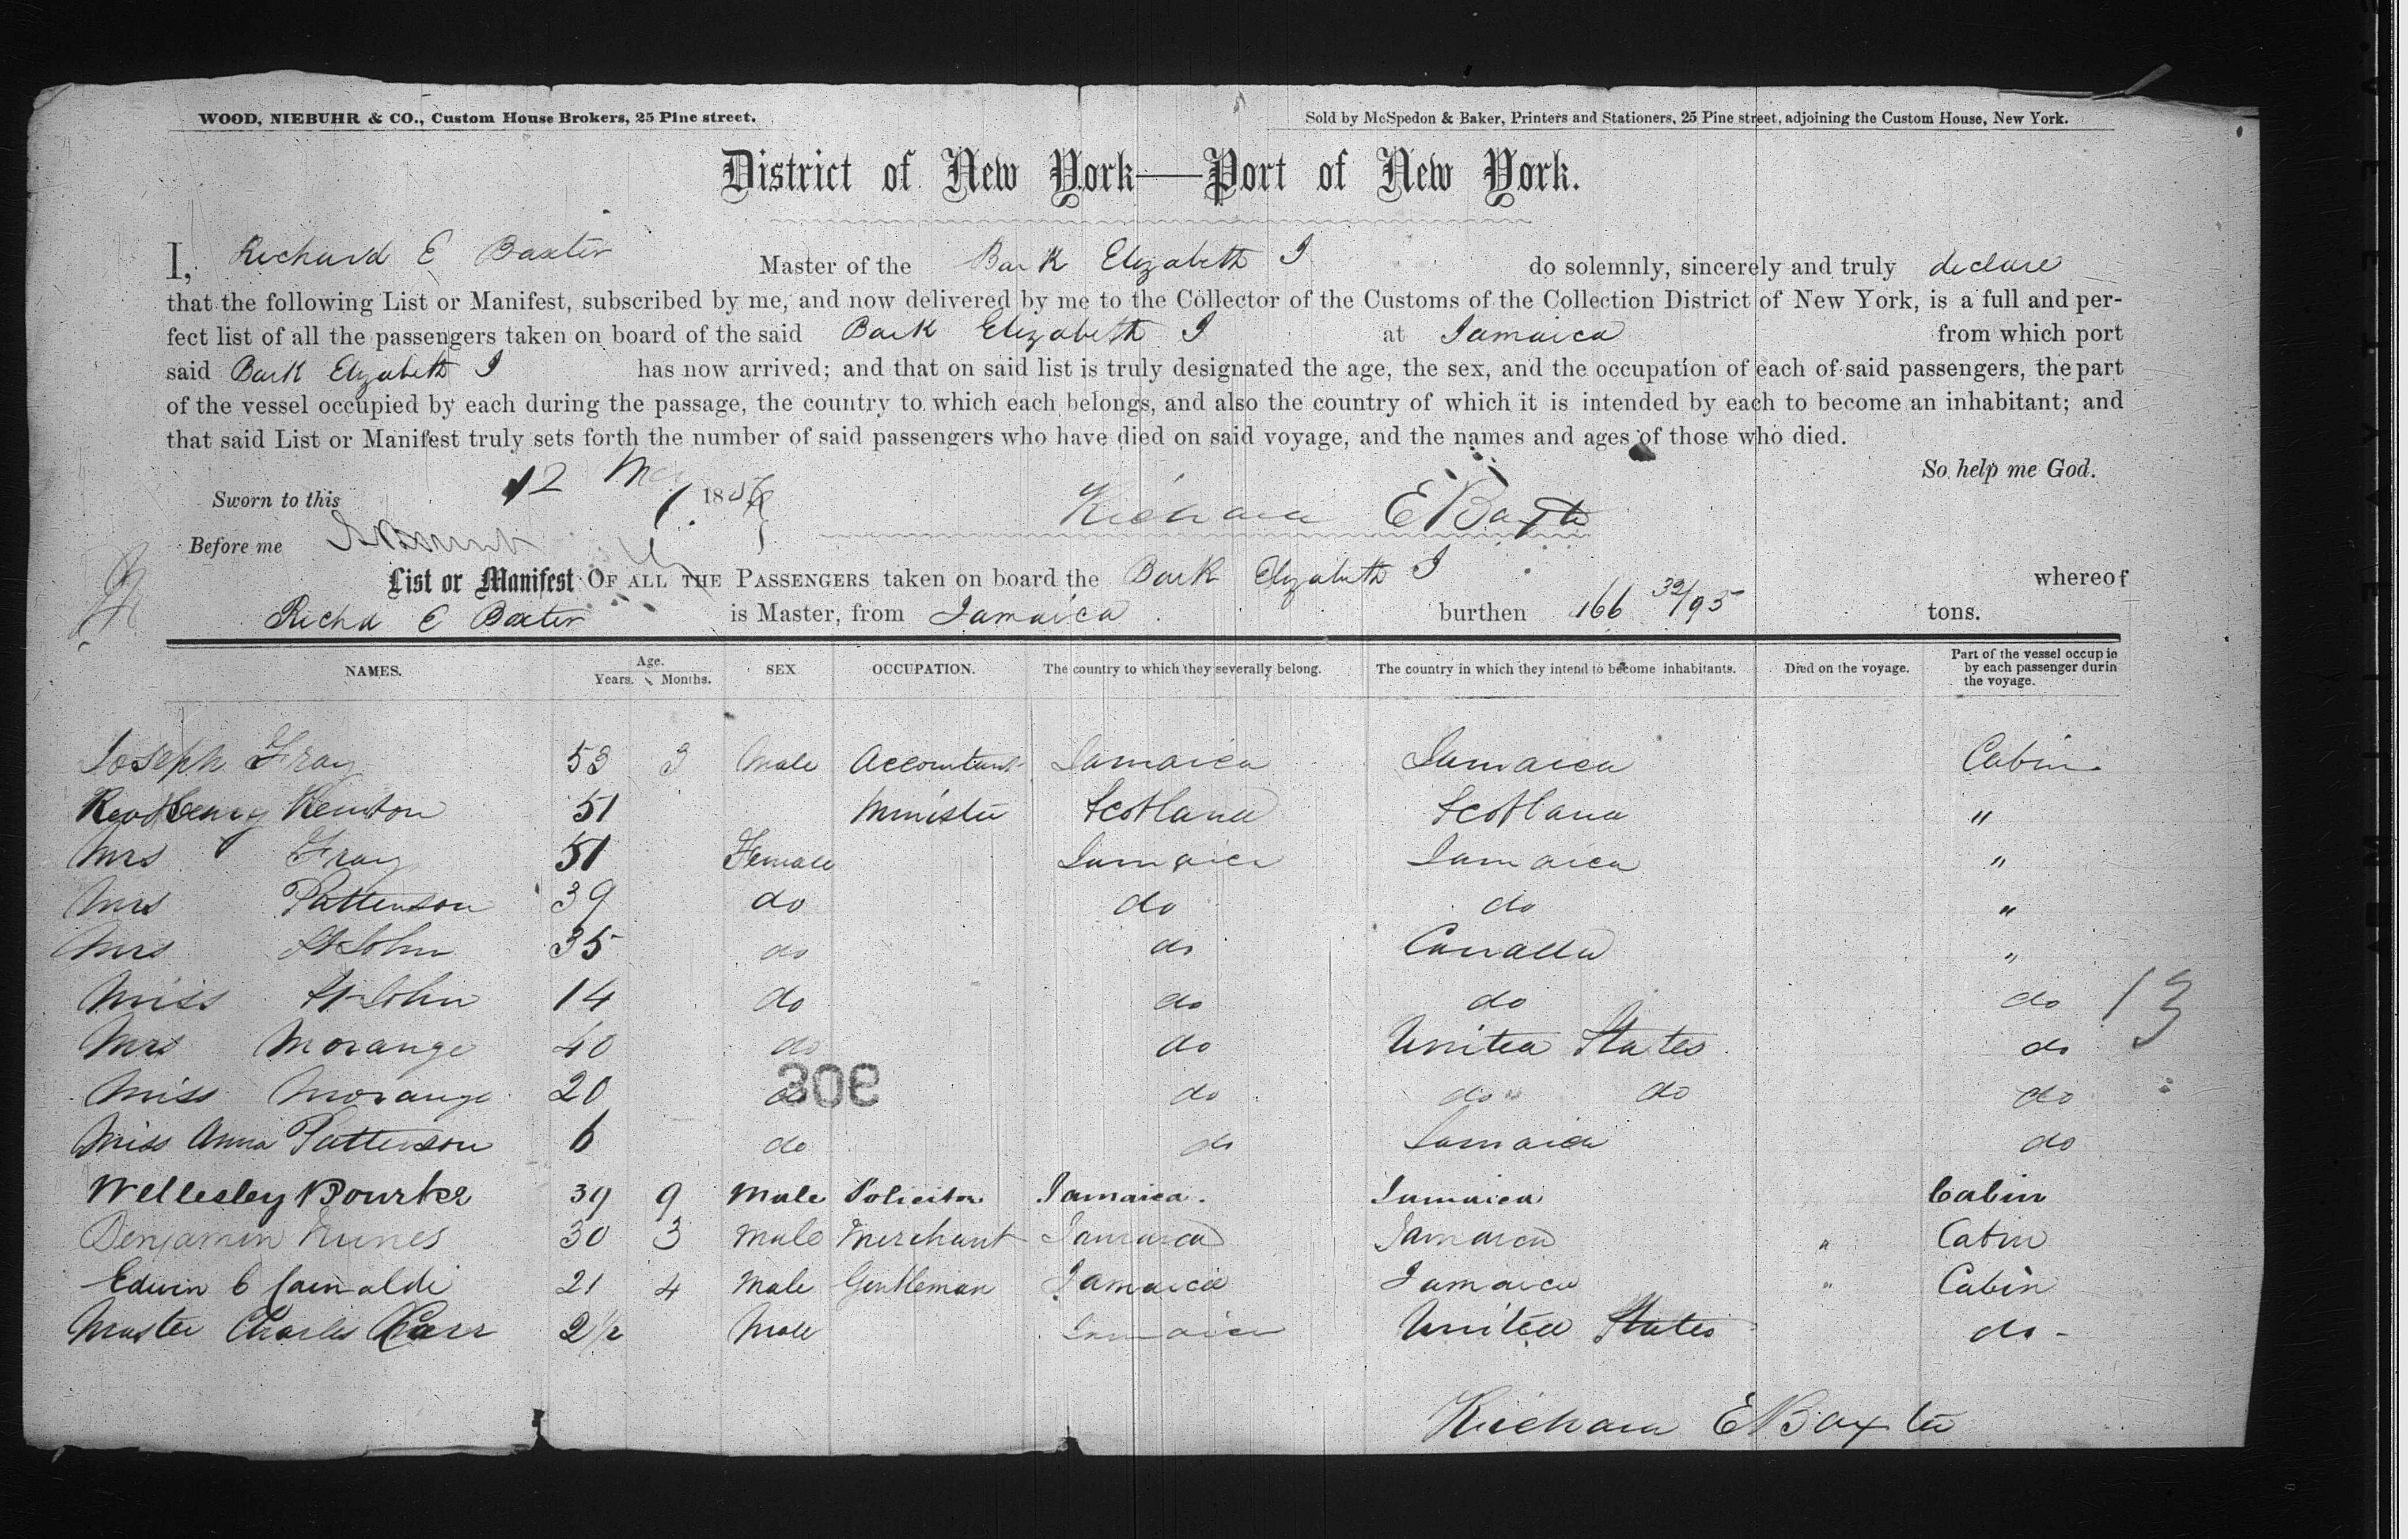 WOOD, NIEBUHR & CO., Custom House Brokers, 25 Pine street. Sold by McSpedon & Baker, Printers and Stationers, 25 Pine street, adjoining the Custom House, New York.
District of New York—Port of New York.
I, Richard E Baxter Master of the Bark Elizabeth J do solemnly, sincerely and truly declare
that the following List or Manifest, subscribed by me, and now delivered by me to the Collector of the Customs of the Collection District of New York, is a full and per-
fect list of all the passengers taken on board of the said Bark Elizabeth J at Jamaica from which port
said Bark Elizabeth J has now arrived; and that on said list is truly designated the age, the sex, and the occupation of each of said passengers, the part
of the vessel occupied by each during the passage, the country to which each belongs, and also the country of which it is intended by each to become an inhabitant; and
that said List or Manifest truly sets forth the number of said passengers who have died on said voyage, and the names and ages of those who died.
So help me God.
Sworn to this 12 May 1856 Richard E Baxter
Before me
List or Manifest OF ALL THE PASSENGERS taken on board the Bark Elizabeth J whereof
Richd E Baxter is Master, from Jamaica burthen 166 32/95 tons.
NAMES. Age. Years. Months. SEX OCCUPATION. The country to which they severally belong. The country in which they intend to become inhabitants. Died on the voyage. Part of the vessel occupie by each passenger durin the voyage.
Joseph Fray 53 3 Male Accountant Jamaica Jamaica Cabin
Revd Henry Renton 51 Minister Scotland Scotland "
Mrs Fray 51 Female Jamaica Jamaica "
Mrs Pattenson 39 do do do "
Mrs St John 35 do do Canada "
Miss St John 14 do do do do 13
Mrs Morange 40 do do United States do
Miss Morange 20 do do do do do
306
Miss Anna Pattenson 6 do do Jamaica do
Wellesley Bourke 39 9 Male Solicitor Jamaica. Jamaica Cabin
Benjamin Nunes 30 3 Male Merchant Jamaica Jamaica " Cabin
Edwin C 21 4 Male Gentleman Jamaica Jamaica " Cabin
Master Charles Carr 2 1/2 Male Jamaica United States do -
Richard E Baxter